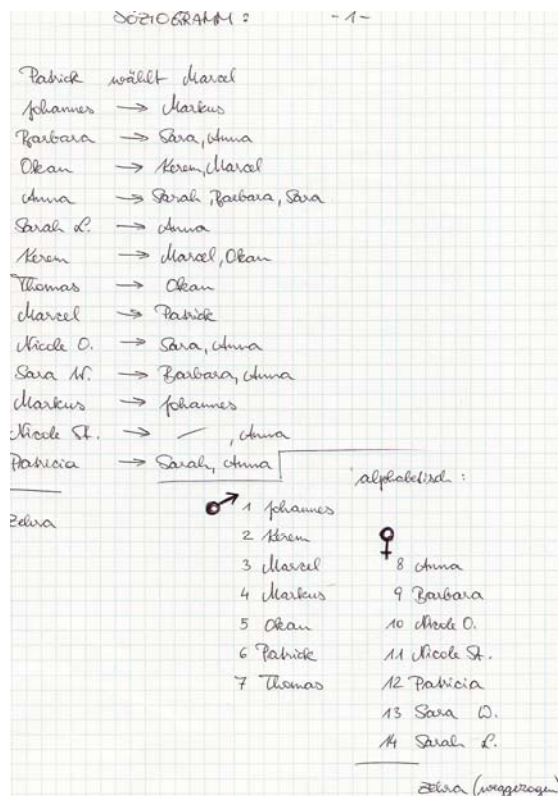 SOZIOGRAMM: -1-
Patrick wählt Marcel
Johannes → Markus
Barbara → Sara, Anna
Okan → Kerem, Marcel
Anna → Sarah, Barbara, Sara
Sarah L. → Anna
Kerem → Marcel, Okan
Thomas → Okan
Marcel → Patrick
Nicole O. → Sara, Anna
Sara W. → Barbara, Anna
Markus → Johannes
Nicole St. → — , Anna
Patricia → Sarah, Anna
Zehra
alphabetisch:
♂ 1 Johannes
2 Kerem
3 Marcel
4 Markus
5 Okan
6 Patrick
7 Thomas
♀
8 Anna
9 Barbara
10 Nicole O.
11 Nicole St.
12 Patricia
13 Sara W.
14 Sarah L.
Zehra (weggezogen)